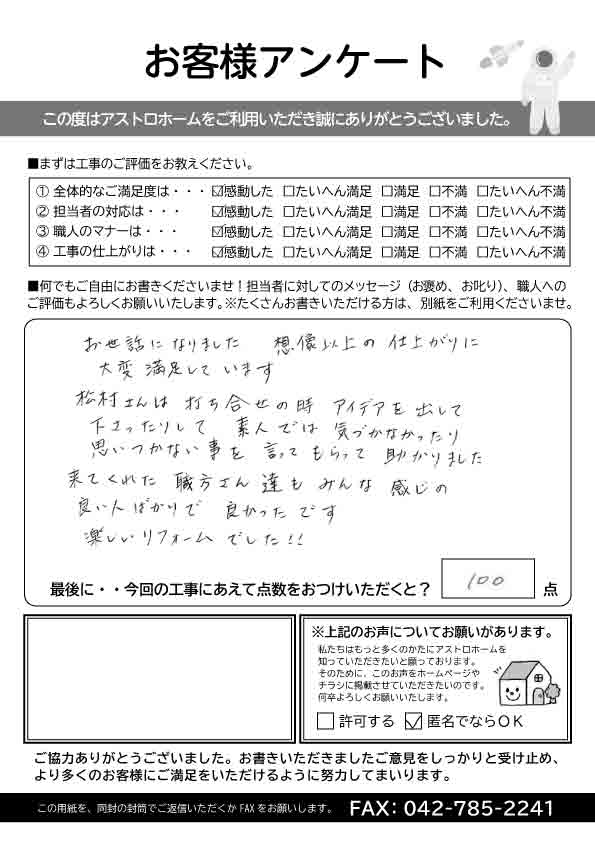 お客様アンケート
この度はアストロホームをご利用いただき誠にありがとうございました。
■まずは工事のご評価をお教えください。
① 全体的なご満足度は・・・ ☑感動した □たいへん満足 □満足 □不満 □たいへん不満
② 担当者の対応は・・・ ☑感動した □たいへん満足 □満足 □不満 □たいへん不満
③ 職人のマナーは・・・ ☑感動した □たいへん満足 □満足 □不満 □たいへん不満
④ 工事の仕上がりは・・・ ☑感動した □たいへん満足 □満足 □不満 □たいへん不満
■何でもご自由にお書きくださいませ！担当者に対してのメッセージ（お褒め、お叱り）、職人への
ご評価もよろしくお願いいたします。※たくさんお書きいただける方は、別紙をご利用くださいませ。
お世話になりました 想像以上の仕上がりに
大変満足しています
松村さんは打ち合せの時 アイデアを出して
下さったりして 素人では気づかなかったり
思いつかない事を言ってもらって助かりました
来てくれた職方さん達もみんな感じの
良い人ばかりで 良かったです
楽しいリフォームでした!!
最後に・・今回の工事にあえて点数をおつけいただくと？ 100 点
※上記のお声についてお願いがあります。
私たちはもっと多くのかたにアストロホームを
知っていただきたいと願っております。
そのために、このお声をホームページや
チラシに掲載させていただきたいのです。
何卒よろしくお願いいたします。
□ 許可する ☑ 匿名でならOK
ご協力ありがとうございました。お書きいただきましたご意見をしっかりと受け止め、
より多くのお客様にご満足をいただけるように努力してまいります。
この用紙を、同封の封筒でご返信いただくか FAX をお願いします。 FAX: 042-785-2241